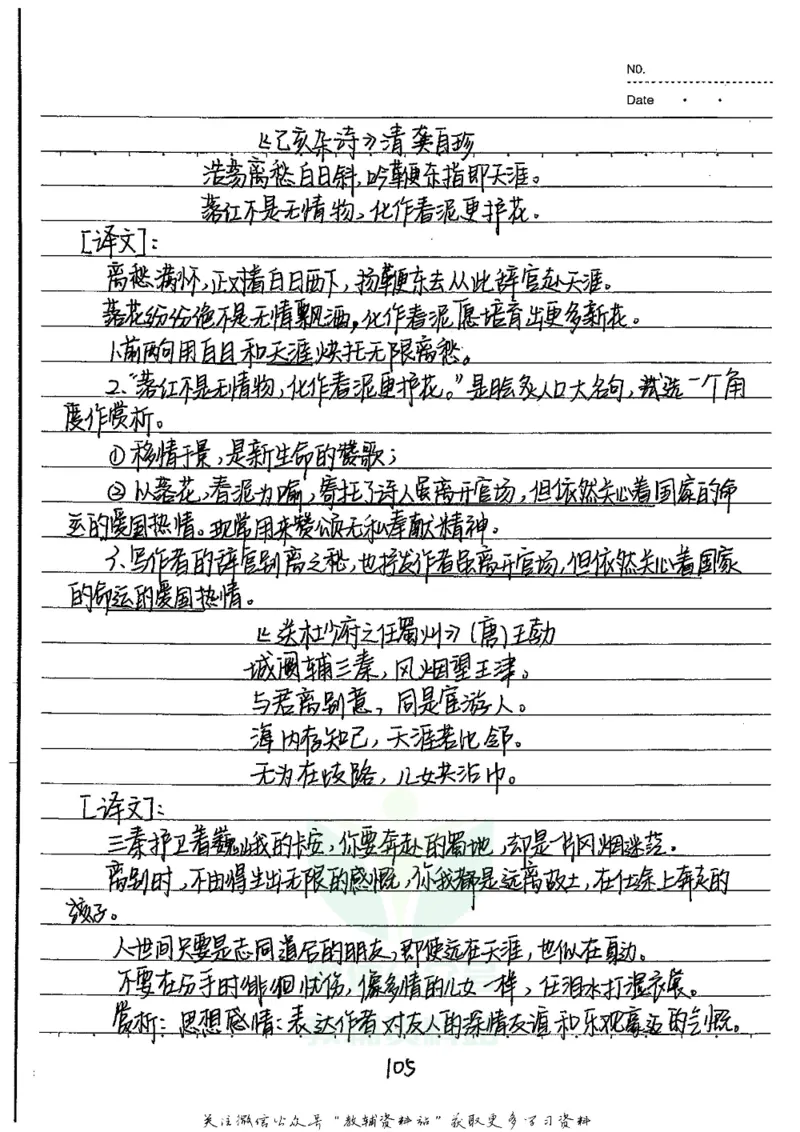 NO.
Date
《己亥杂诗》清 龚自珍
浩荡离愁白日斜,吟鞭东指即天涯。
落红不是无情物,化作春泥更护花。
[译文]:
离愁满怀,正对着白日西下,扬鞭东去从此辞官赴天涯。
落花纷纷绝不是无情飘洒,化作春泥愿培育出更多新花。
1.前两句用白日和天涯烘托无限离愁。
2."落红不是无情物,化作春泥更护花。"是脍炙人口大名句,试选一个角
度作赏析。
①移情于景,是新生命的赞歌;
②以落花,春泥为喻,寄托了诗人虽离开官场,但依然关心着国家的命
运的爱国热情。现常用来赞颂无私奉献精神.
3.写作者的辞官别离之愁,也抒发作者虽离开官场,但依然关心着国家
的命运的爱国热情。
《送杜少府之任蜀州》(唐)王勃
城阙辅三秦,风烟望五津。
与君离别意,同是宦游人。
海内存知己,天涯若比邻。
无为在岐路,儿女共沾巾。
[译文]:
三秦护卫着巍峨的长安,你要奔赴的蜀地,却是一片风烟迷茫。
离别时,不由得生出无限的感慨,你我都是远离故土,在仕途上奔走的
孩子。
人世间只要是志同道合的朋友,即使远在天涯,也似在身边。
不要在分手时徘徊忧伤,像多情的儿女一样,任泪水打湿衣裳。
赏析:思想感情:表达作者对友人的深情友谊和乐观豪迈的气慨。
105
关注微信公众号"教辅资料站"获取更多学习资料